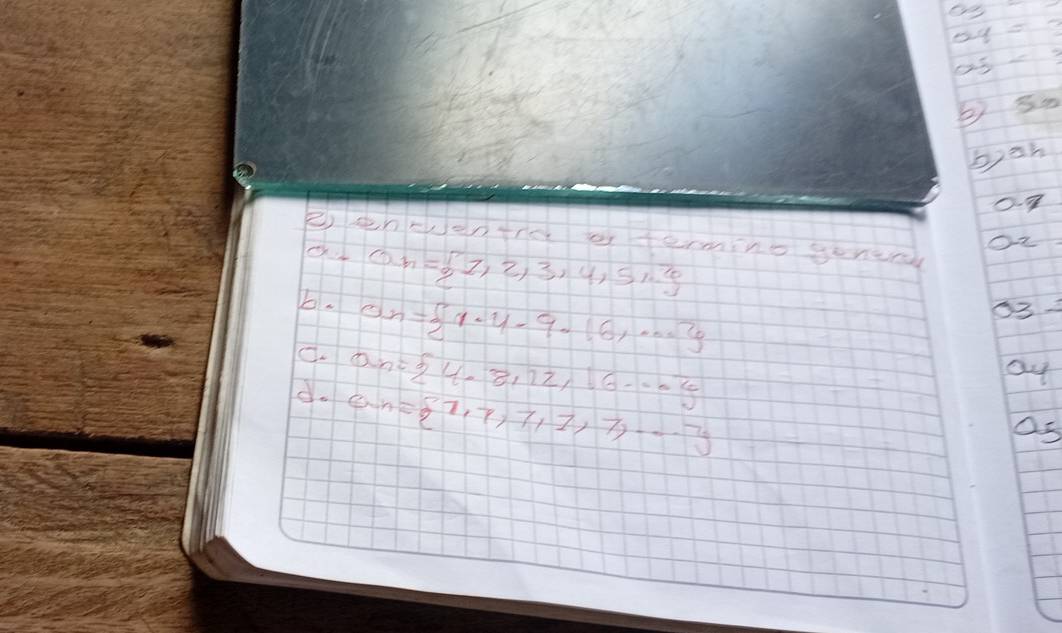 2) encuentra el termino general
a. an={1, 2, 3, 4, 5, ...}
b. an={1. 4 - 9. 16, ....}
c. an={4. 8, 12, 16 ....}
d. an={1, 1, 1, 1, 1, ....}
a3
a4 =
a5 =
b)
b) an
a1
a2
a3 -
a4
a5